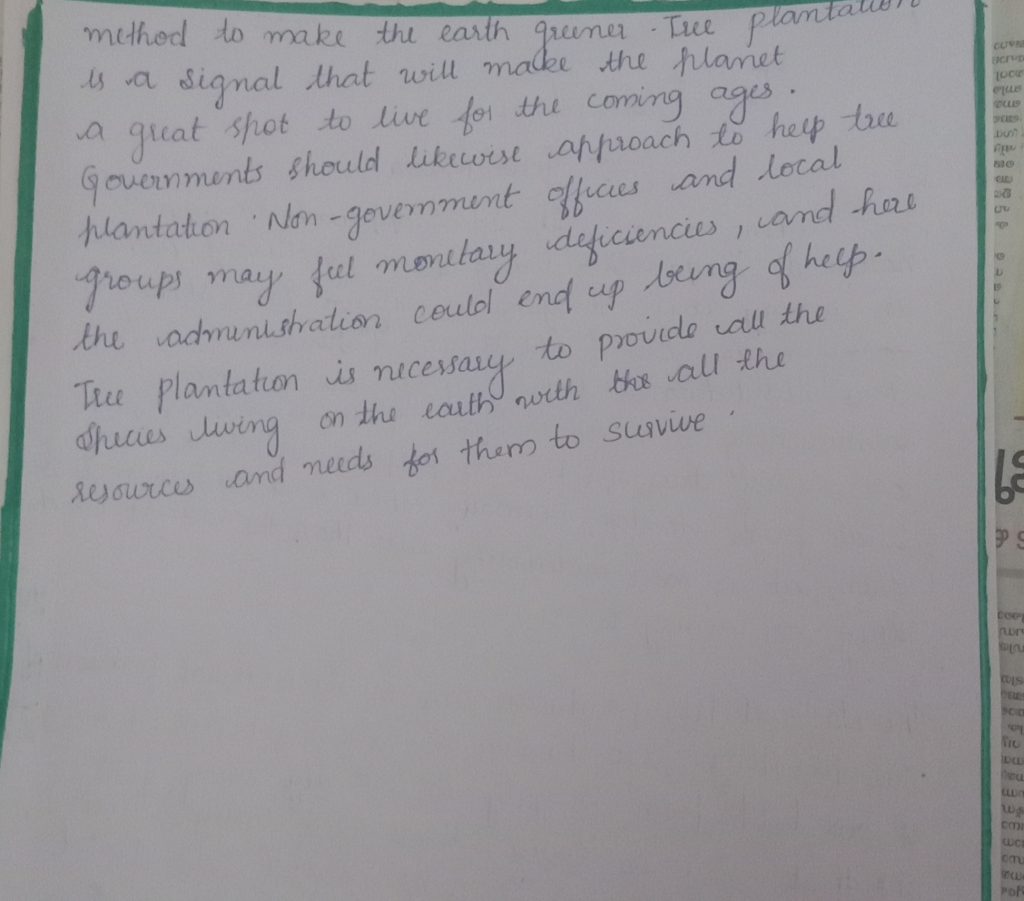 method to make the earth greener. Tree plantation
is a signal that will make the planet
a great spot to live for the coming ages.
Governments should likewise approach to help tree
plantation. Non-government officies and local
groups may feel monetary deficiencies, and here
the administration could end up being of help.
Tree plantation is necessary to provide all the
species living on the earth with the all the
resources and needs for them to survive.